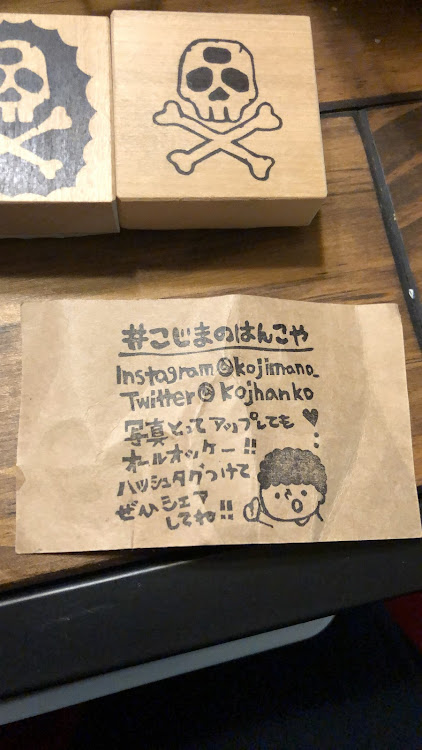 #こじまのはんこや
Instagram@kojimano_
Twitter@kojhanko
写真とってアップしても
オールオッケー!!
ハッシュタグつけて
ぜひシェア
してね!!